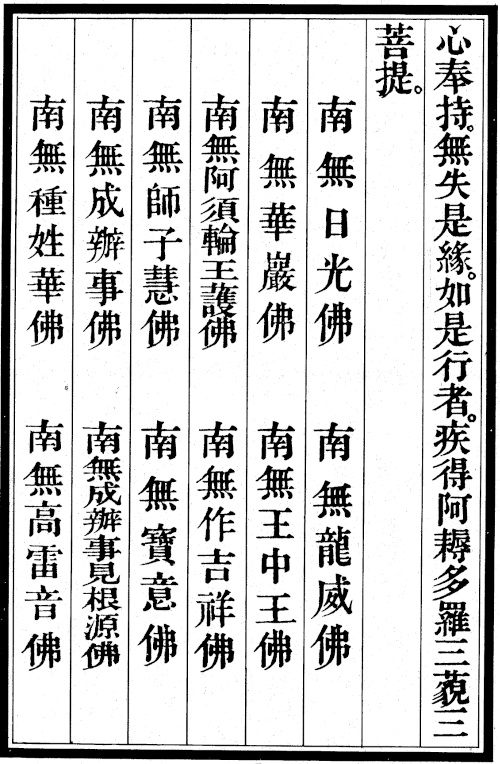 心奉持。無失是緣。如是行者。疾得阿耨多羅三藐三
菩提。
南無日光佛　南無龍威佛
南無華巖佛　南無王中王佛
南無阿須輪王護佛　南無作吉祥佛
南無師子慧佛　南無寶意佛
南無成辦事佛　南無成辦事見根源佛
南無種姓華佛　南無高雷音佛